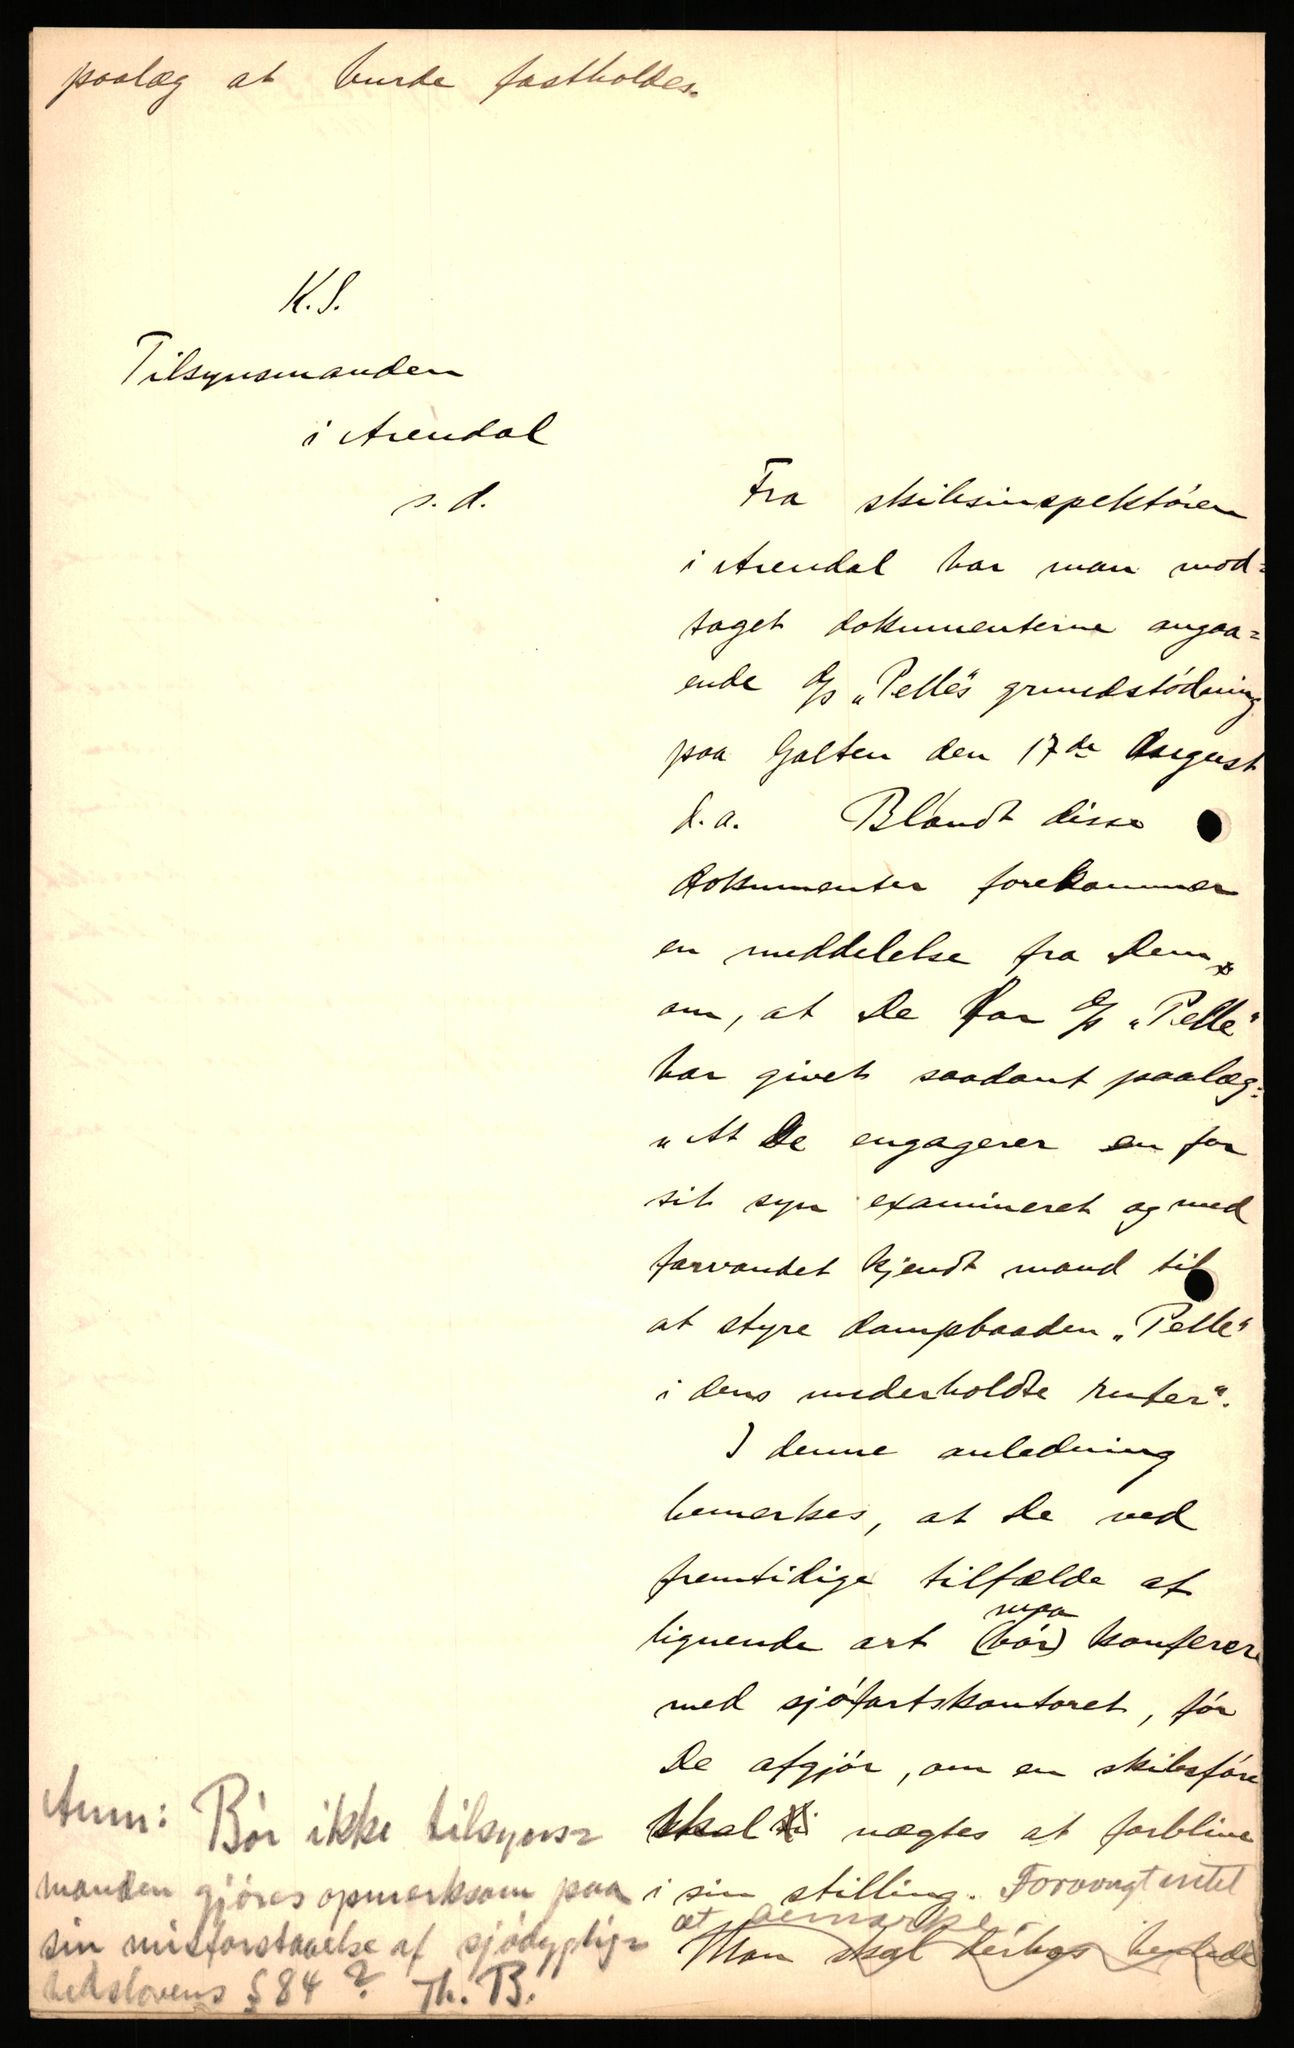 paalæg at burde fastholdes.
K. S.
Tilsynsmanden
i Arendal
s. d.
Fra skibsinspektören
i Arendal har man mod=
taget dokumenterne angaa=
ende D/S „Pelle"s grundstödning
paa Galten den 17de August
d. a. Blandt disse
dokumenter forekommer
en meddelelse fra Dem
om, at De for D/S „Pelle"
har givet saadant paalæg:
„At De engagerer en for
sit syn examineret og med
farvandet kjendt mand til
at styre dampbaaden „Pelle"
i dens underholdte ruter".
I denne anledning
bemerkes, at De ved
fremtidige tilfælde af
maa
lignende art (bör) konferere
med sjöfartskontoret, før
De afgjör, om en skibsförer
skal nægtes at forblive
i sin stilling. Forövrigt intet
at bemærke.
Man skal derhos bede
Anm: Bör ikke tilsyns=
manden gjöres opmerksom paa
sin misforstaaelse af sjödygtig=
hedslovens § 84? Th. B.